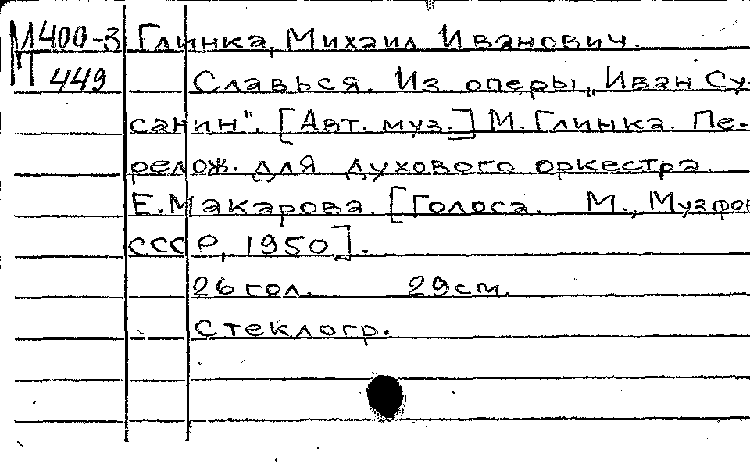 М 400-3 Глинка, Михаил Иванович.
449 Славься. Из оперы „Иван Су-
санин". [Авт. муз.] М. Глинка. Пе-
релож. для духового оркестра
Е. Макарова. [Голоса. М., Музфон
СССР, 1950].
26 гол. 29 см.
Стеклогр.